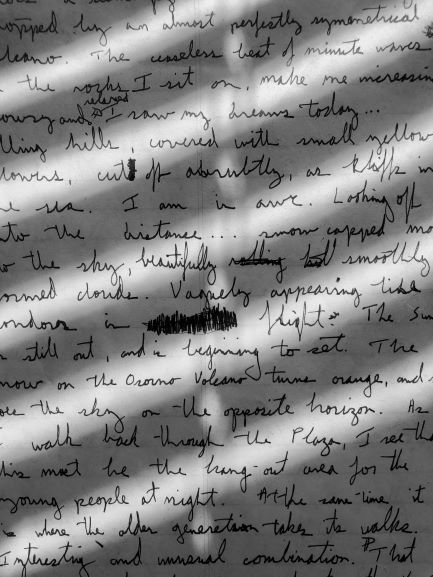 topped by an almost perfectly symmetrical
olcano. The ceaseless beat of minute waves
the rocks I sit on, make me increasin
relaxed
rowsy and I saw my dreams today...
lling hills, covered with small yellow
lowers, cut off abruptly, as kliffs in
he sea. I am in awe. Looking off
nto the distance... snow capped mo
the sky, beautifully smoothly
ormed clouds. Vaguely appearing like
ondors in flight. The sun
still out, and is beginning to set. The
now on the Osorno Volcano turns orange, and s
oe the sky on the opposite horizon. As
I walk back through the Plaza, I see tha
his must be the hang-out area for the
young people at night. At the same-time it
is where the older generation takes its walks.
Interesting and unusual combination. That